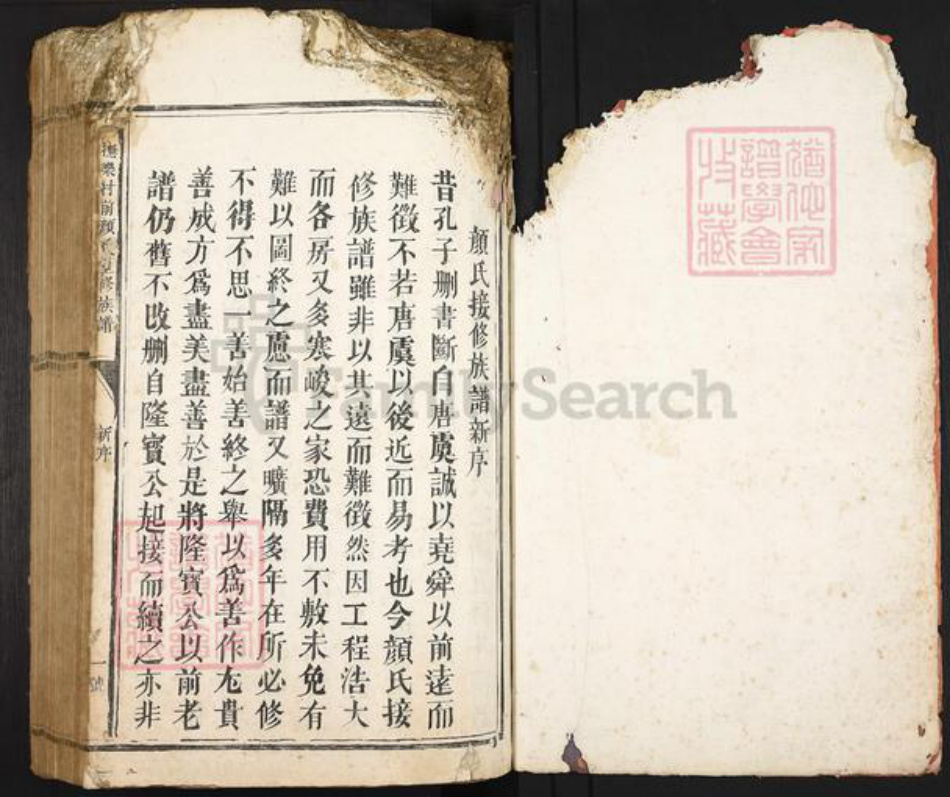 猶他家
譜學會
收藏
顏氏接修族譜新序
昔孔子刪書斷自唐虞誠以堯舜以前遠而
難徵不若唐虞以後近而易考也今顏氏接
修族譜雖非以其遠而難徵然因工程浩大
而各房又多寒峻之家恐費用不敷未免有
難以圖終之慮而譜又曠隔多年在所必修
不得不思一善始善終之舉以爲善作尤貴
善成方爲盡美盡善於是將隆寶公以前老
譜仍舊不改刪自隆寶公起接而續之亦非
樂村前顏氏 修族譜
新序
一號
FamilySearch